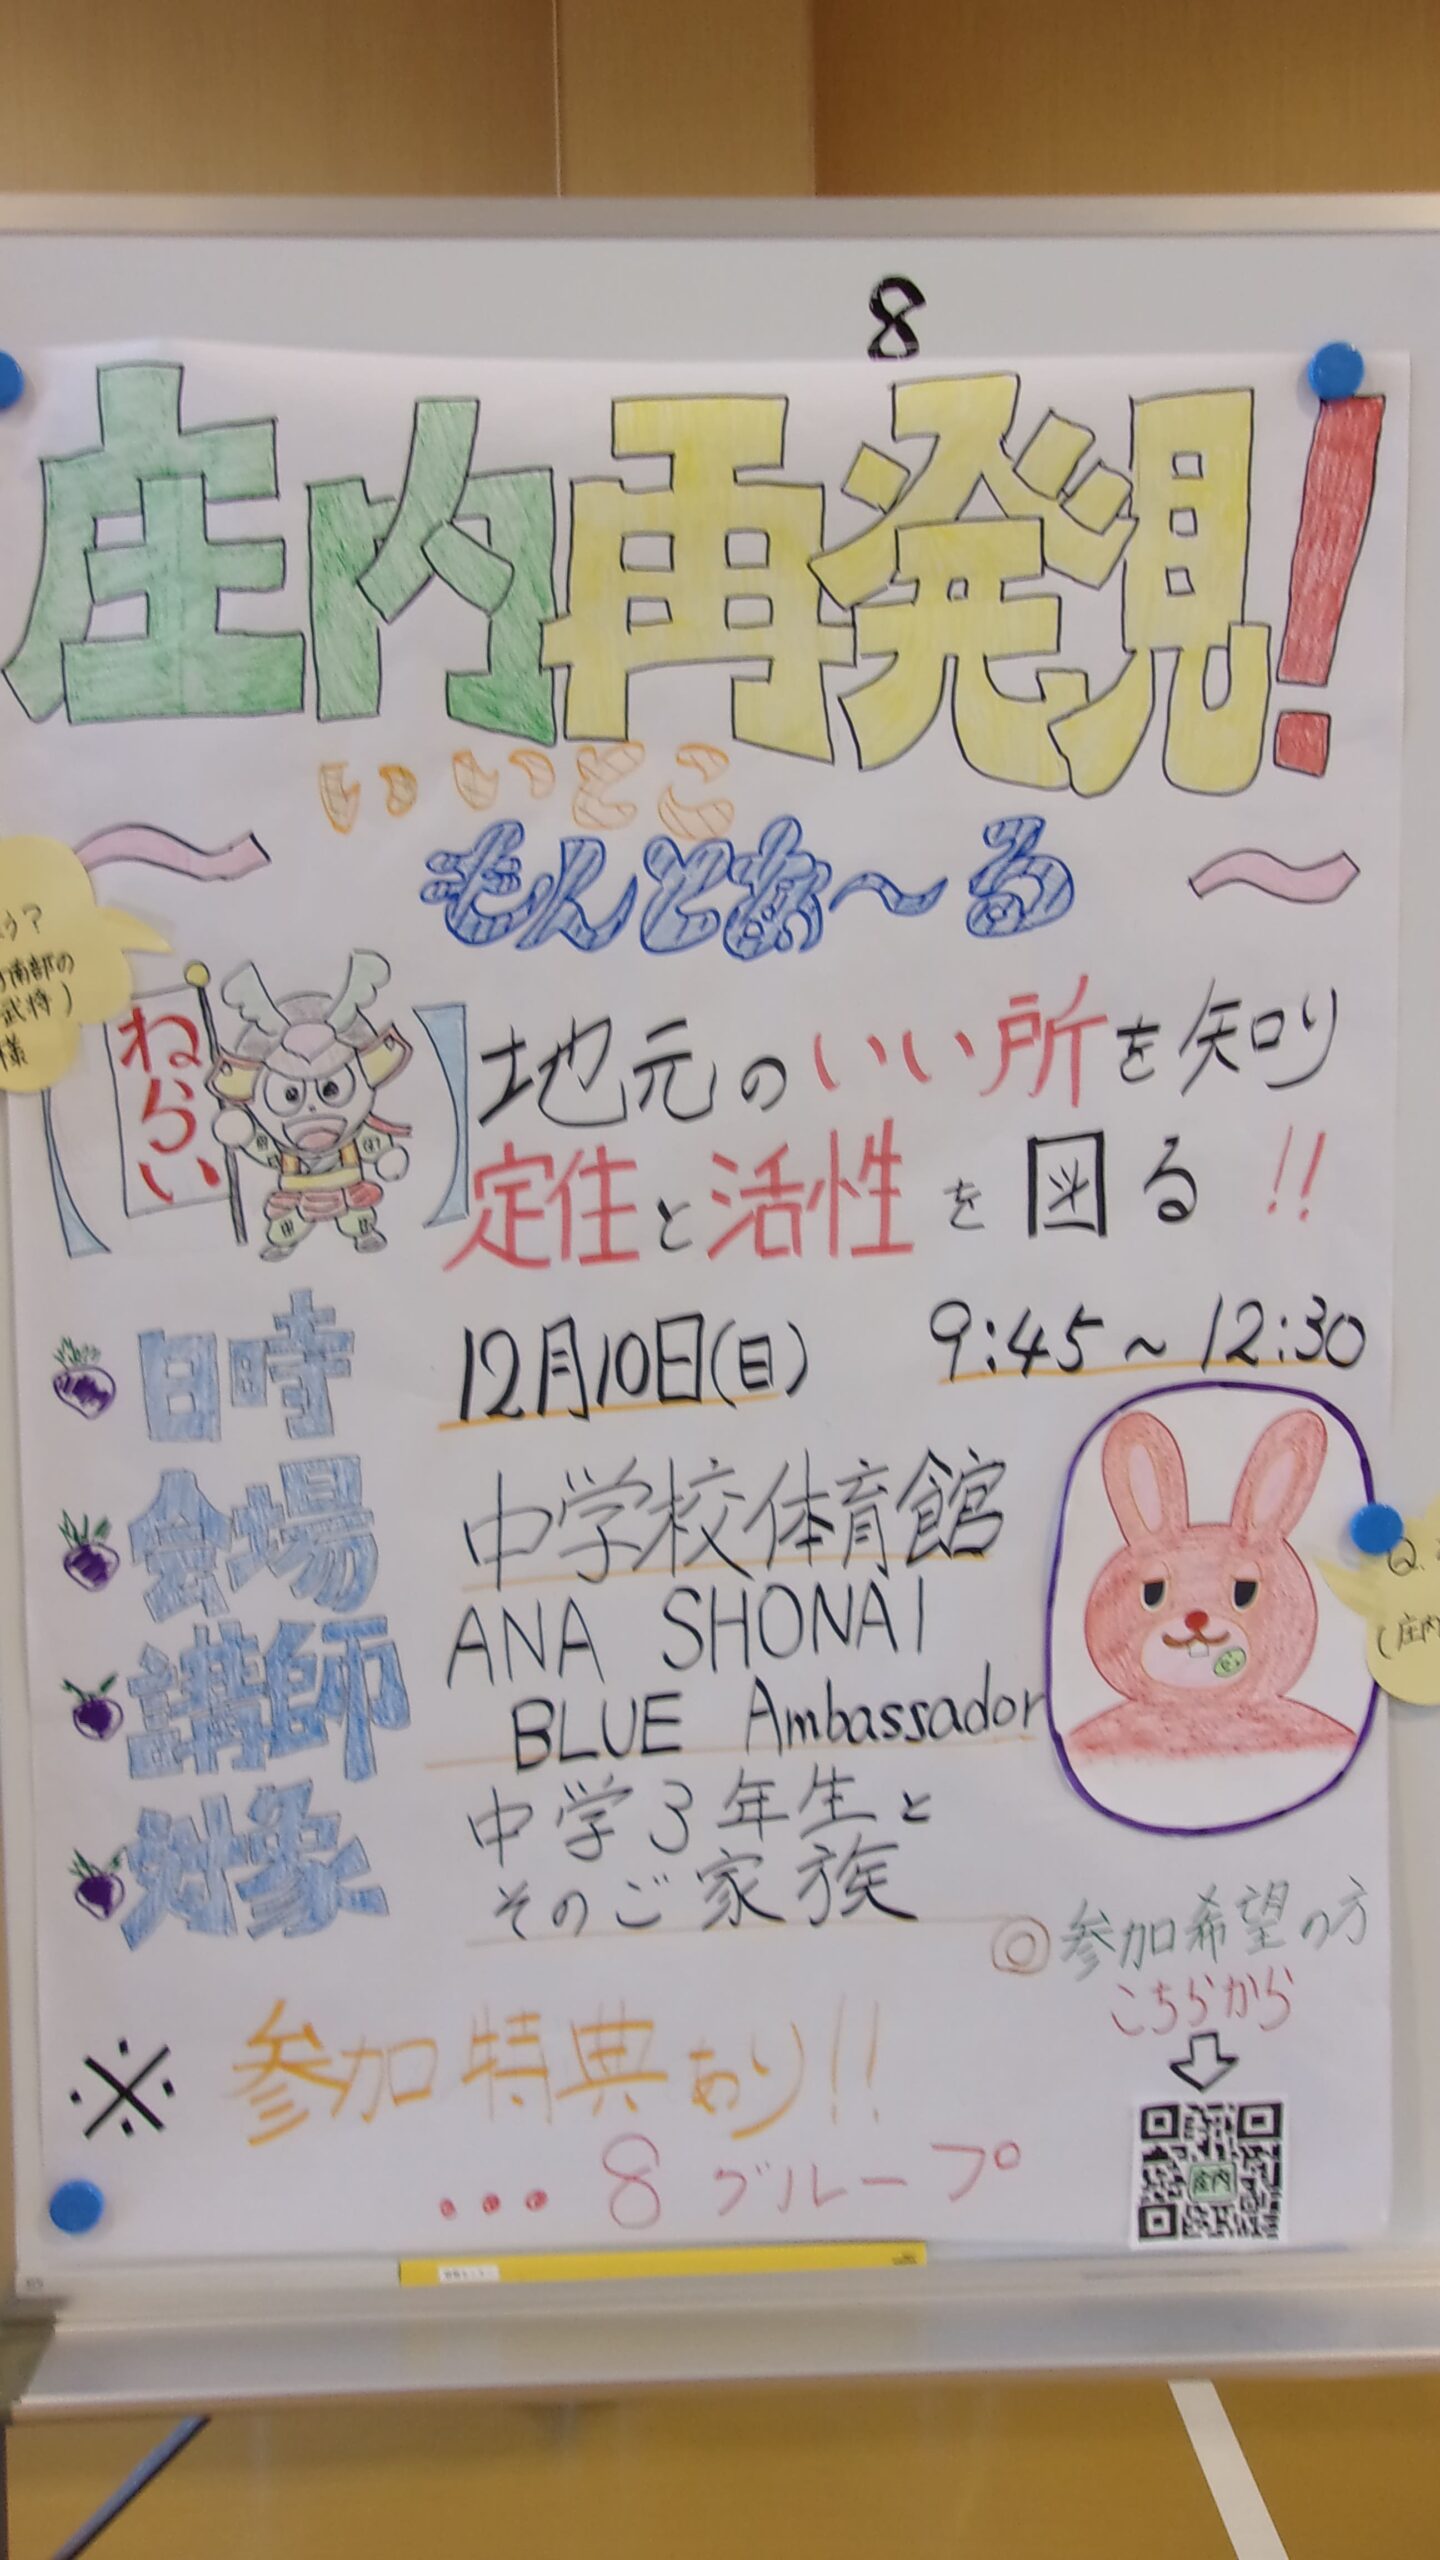 8
庄内再発見!
いいとこ
〜 もんとあ〜る 〜
ねらい
地元のいい所を知り
定住と活性を図る!!
日時 12月10日(日) 9:45~12:30
会場 中学校体育館
講師 ANA SHONAI
BLUE Ambassador
対象 中学3年生と
そのご家族
◎参加希望の方
こちらから
※ 参加特典あり!!
・・・8グループ
庄内
南部の
武将)
様
Q.
(庄内